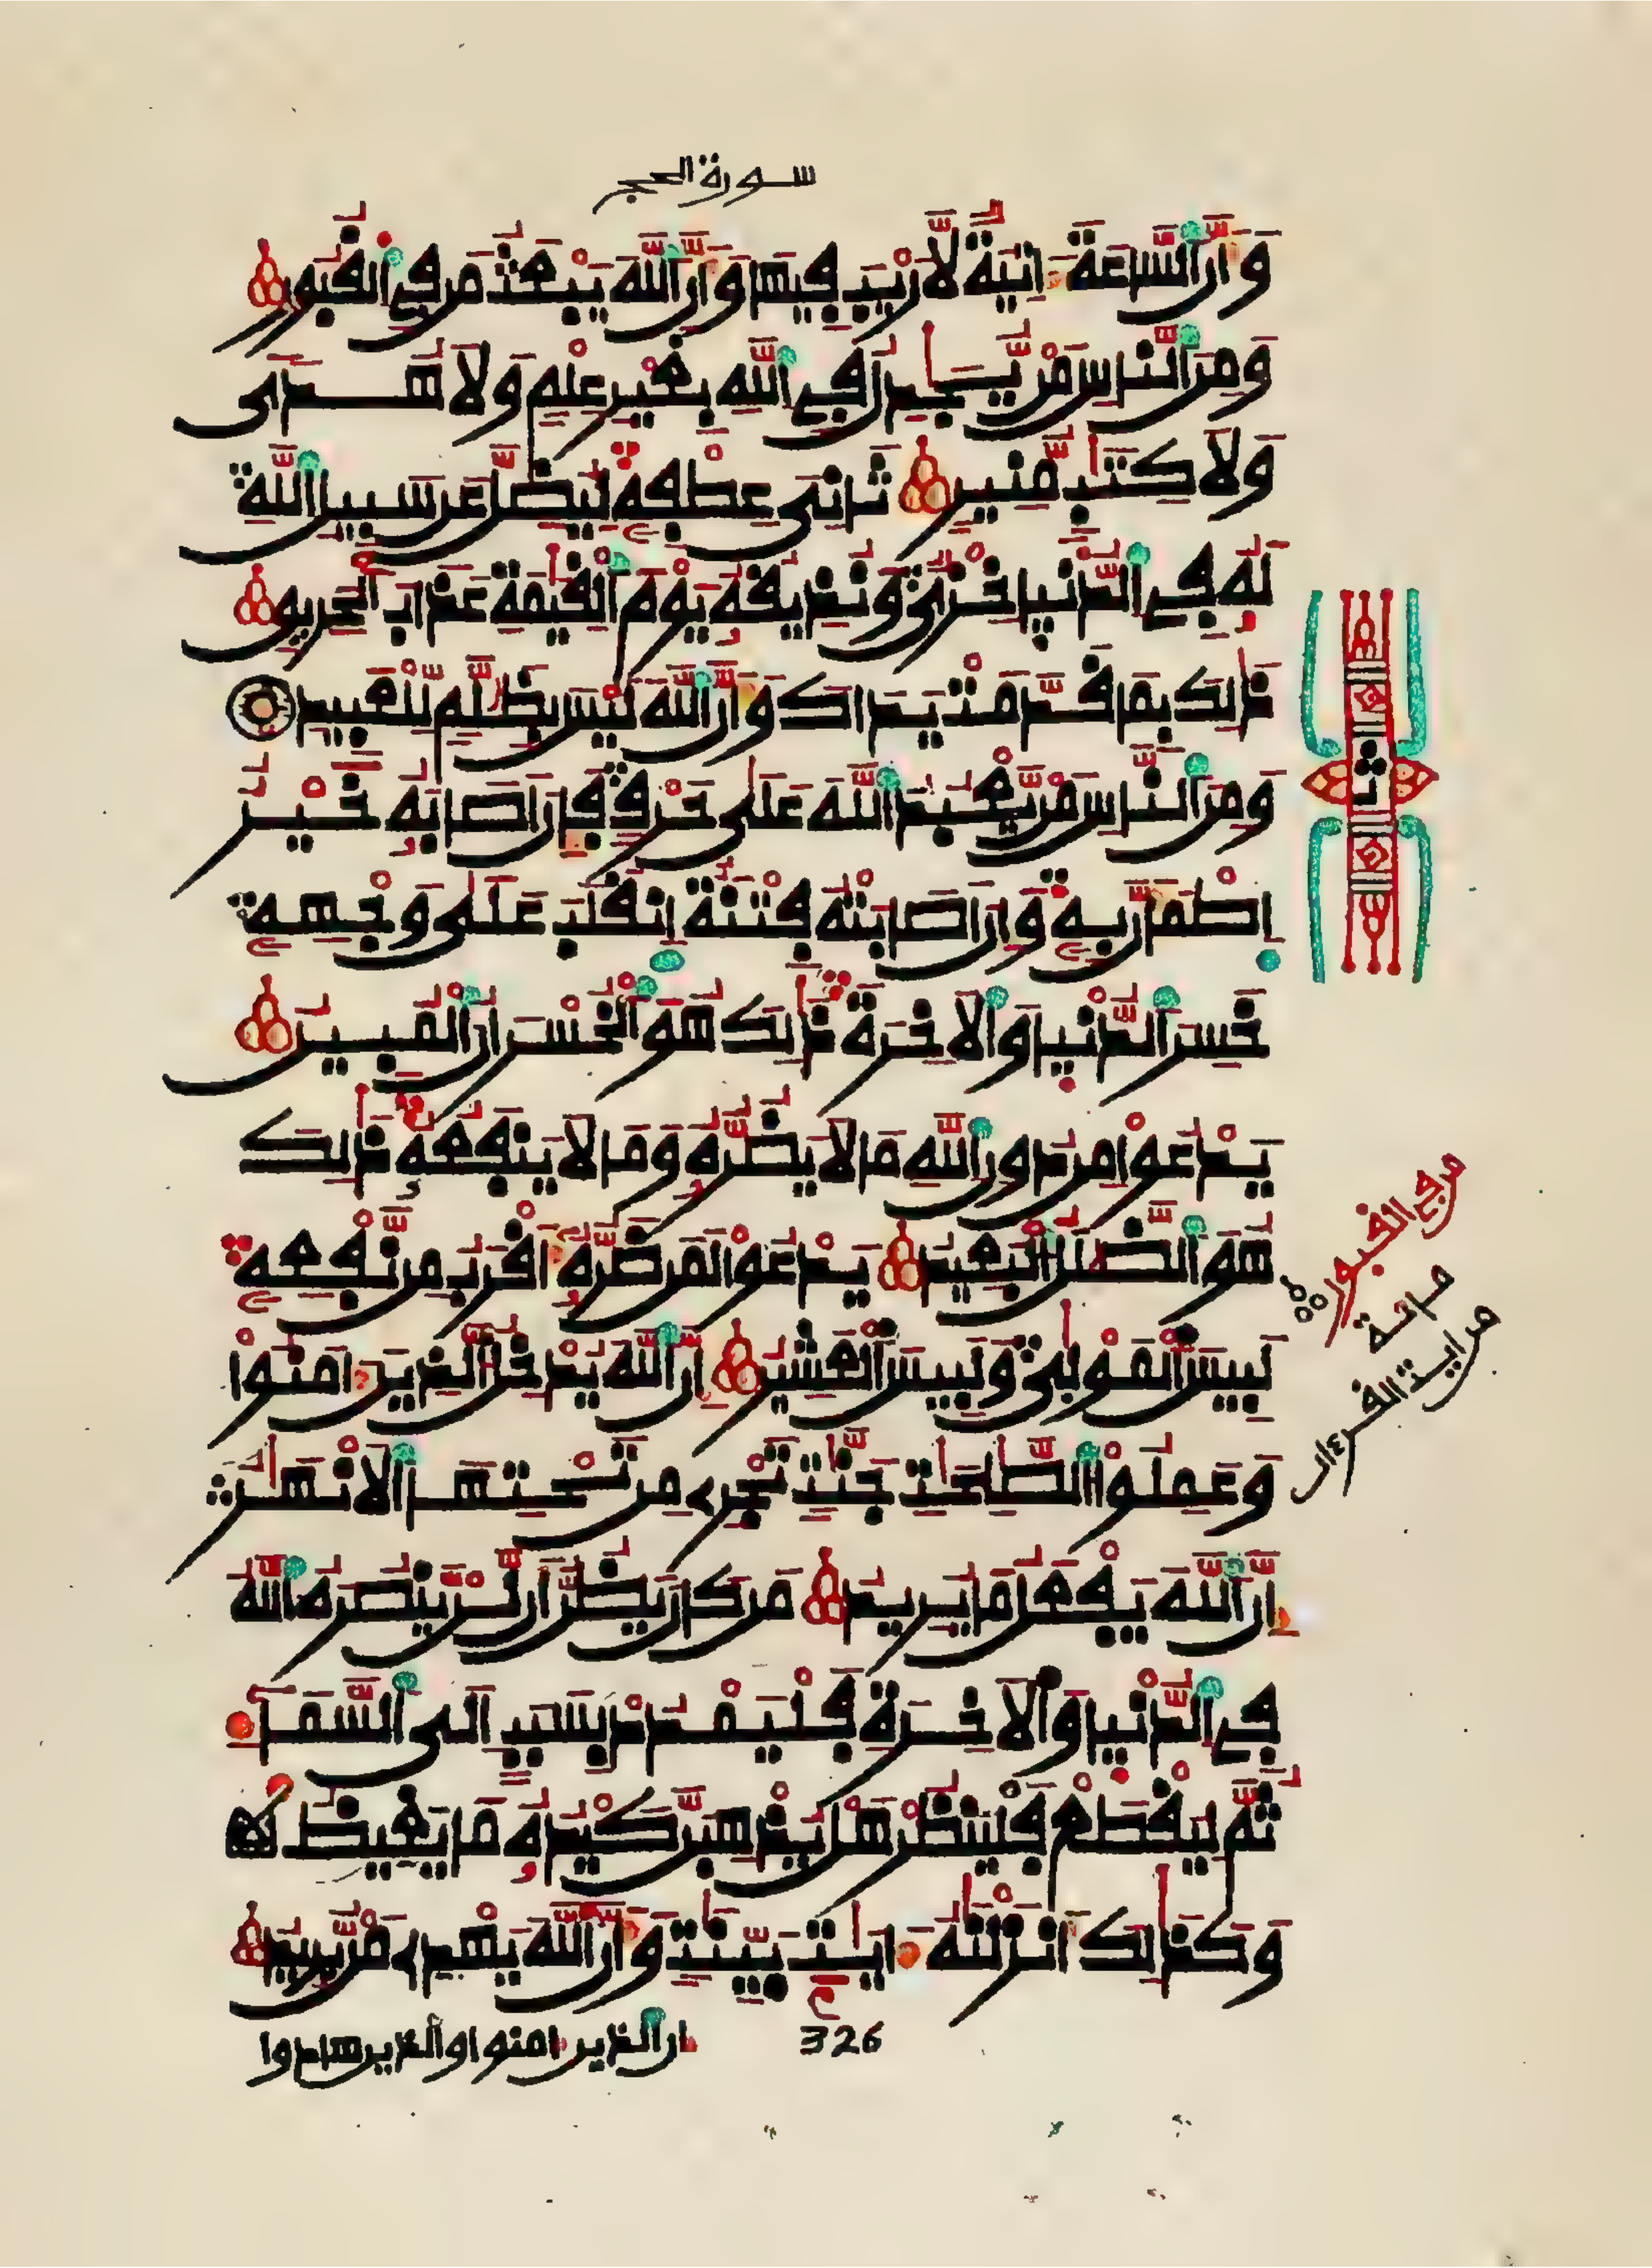 سورة الحج
وَأَنَّ ٱلسَّاعَةَ ءَاتِيَةٌ لَّا رَيْبَ فِيهَا وَأَنَّ ٱللَّهَ يَبْعَثُ مَن فِي ٱلْقُبُورِ
وَمِنَ ٱلنَّاسِ مَنْ يُّجَٰدِلُ فِي ٱللَّهِ بِغَيْرِ عِلْمٍ وَلَا هُدًى
وَلَا كِتَٰبٍ مُّنِيرٍ ثَانِيَ عِطْفِهِ لِيُضِلَّ عَن سَبِيلِ ٱللَّهِ
لَهُ فِي ٱلدُّنْيَا خِزْيٌ وَنُذِيقُهُ يَوْمَ ٱلْقِيَٰمَةِ عَذَابَ ٱلْحَرِيقِ
ذَٰلِكَ بِمَا قَدَّمَتْ يَدَاكَ وَأَنَّ ٱللَّهَ لَيْسَ بِظَلَّٰمٍ لِّلْعَبِيدِ
وَمِنَ ٱلنَّاسِ مَنْ يَّعْبُدُ ٱللَّهَ عَلَىٰ حَرْفٍ فَإِنْ أَصَابَهُ خَيْرٌ
ٱطْمَأَنَّ بِهِ وَإِنْ أَصَابَتْهُ فِتْنَةٌ ٱنقَلَبَ عَلَىٰ وَجْهِهِ
خَسِرَ ٱلدُّنْيَا وَٱلْأَخِرَةَ ذَٰلِكَ هُوَ ٱلْخُسْرَانُ ٱلْمُبِينُ
يَدْعُوا مِن دُونِ ٱللَّهِ مَا لَا يَضُرُّهُ وَمَا لَا يَنفَعُهُ ذَٰلِكَ
هُوَ ٱلضَّلَٰلُ ٱلْبَعِيدُ يَدْعُوا لَمَن ضَرُّهُ أَقْرَبُ مِن نَّفْعِهِ
لَبِيسَ ٱلْمَوْلَىٰ وَلَبِيسَ ٱلْعَشِيرُ إِنَّ ٱللَّهَ يُدْخِلُ ٱلَّذِينَ ءَامَنُوا
وَعَمِلُوا ٱلصَّٰلِحَٰتِ جَنَّٰتٍ تَجْرِي مِن تَحْتِهَا ٱلْأَنْهَٰرُ
إِنَّ ٱللَّهَ يَفْعَلُ مَا يُرِيدُ مَن كَانَ يَظُنُّ أَن لَّنْ يَّنصُرَهُ ٱللَّهُ
فِي ٱلدُّنْيَا وَٱلْأَخِرَةِ فَلْيَمْدُدْ بِسَبَبٍ إِلَى ٱلسَّمَآءِ
ثُمَّ لِيَقْطَعْ فَلْيَنظُرْ هَلْ يُذْهِبَنَّ كَيْدُهُ مَا يَغِيظُ
وَكَذَٰلِكَ أَنزَلْنَٰهُ ءَايَٰتٍ بَيِّنَٰتٍ وَأَنَّ ٱللَّهَ يَهْدِي مَنْ يُّرِيدُ
326
إن ٱلذين ءامنوا وٱلذين هادوا
ثمن
من في القبور
مائة
من اية القرءان